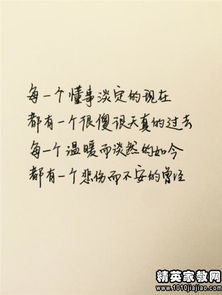 每一个懂事淡定的现在
都有一个很傻很天真的过去
每一个温暖而淡然的如今
都有一个悲伤而不安的曾经
精英家教网
www.1010jiajiao.com